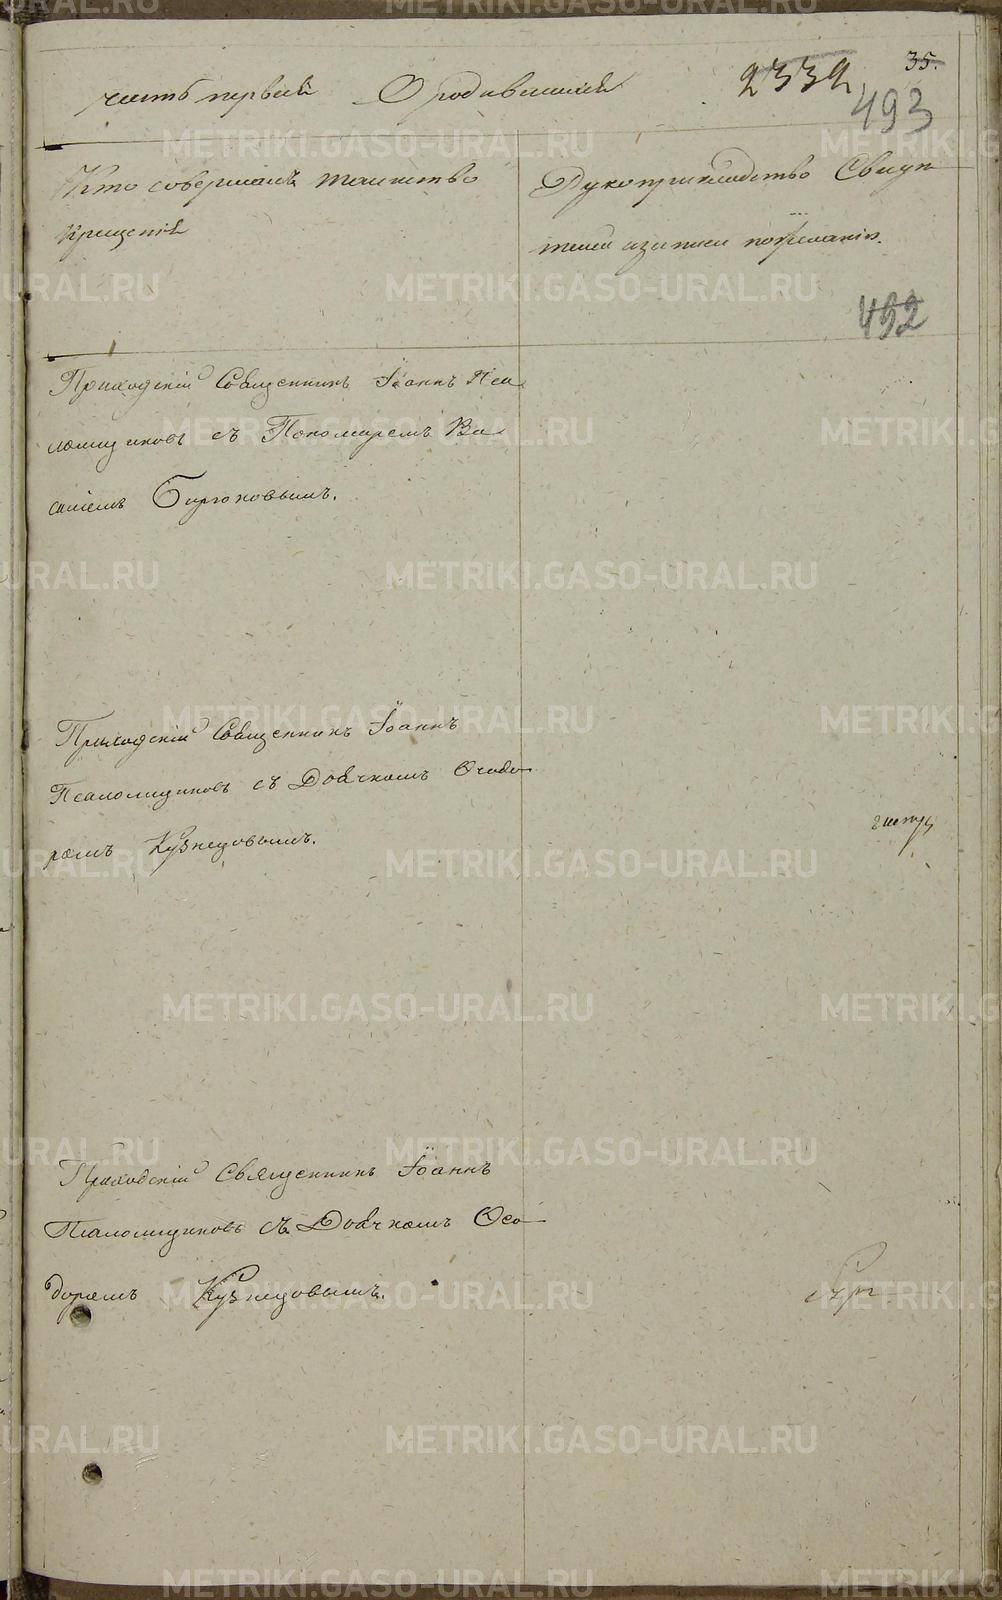 35.
2332
493
часть первая О родившихся
Кто совершалъ таинство
крещенія
Рукоприкладство Свидѣ
телей записи по желанію.
492
Приходскій Священникъ Іоаннъ Пса
ломщиковъ съ Пономаремъ Ва
силіемъ Бирюковымъ.
Приходскій Священникъ Іоаннъ
Псаломщиковъ съ Дьячкомъ Ѳеодо
ромъ Кузнецовымъ.
Приходскій Священникъ Іоаннъ
Псаломщиковъ съ Дьячкомъ Ѳео
доромъ Кузнецовымъ.
METRIKI.GASO-URAL.RU